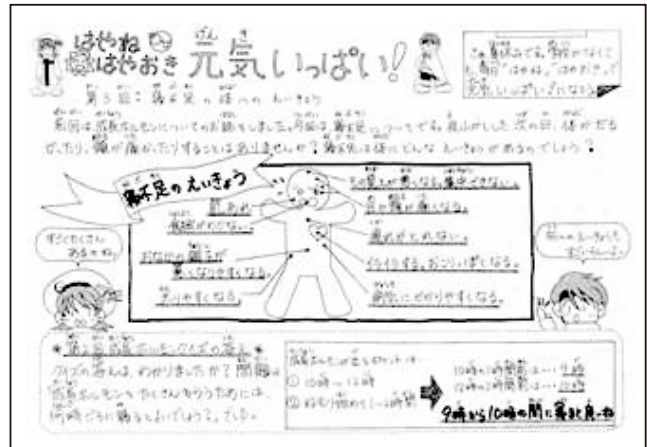 はやね
はやおき 元気いっぱい!
夏休みです。学校がなくて
も、毎日"はやね。"はやおき。で
元気いっぱい♪になろう
第3回:寝不足の体へのえいきょう
前回は、成長ホルモンについてのお話をしました。今回は、寝不足についてです。夜ふかしした次の日、体がだる
かったり、頭が痛かったりすることはありませんか?寝不足は体にどんなえいきょうがあるのでしょう?
寝不足のえいきょう
肌あれ
食欲がわかない。
おなかの調子が
悪くなりやすくなる。
太りやすくなる。
もの覚えが悪くなる。集中できない。
目や頭が痛くなる。
疲れがとれない。
イライラする。おこりっぽくなる。
病気にかかりやすくなる。
すごくたくさん
あるのね。
すごいらしいよ。
★第2回成長ホルモンクイズの答え★
クイズの答えは、わかりましたか?問題は
「成長ホルモンをたくさんもらうためには、
何時ごろに寝るとよいでしょう?」でした。
成長ホルモンが出るポイントは…
① 10時〜12時
② ねむり始めて1〜2時間
10時の1時間前は…9時
12時の2時間前は…10時
9時から10時の間に寝ると良いね